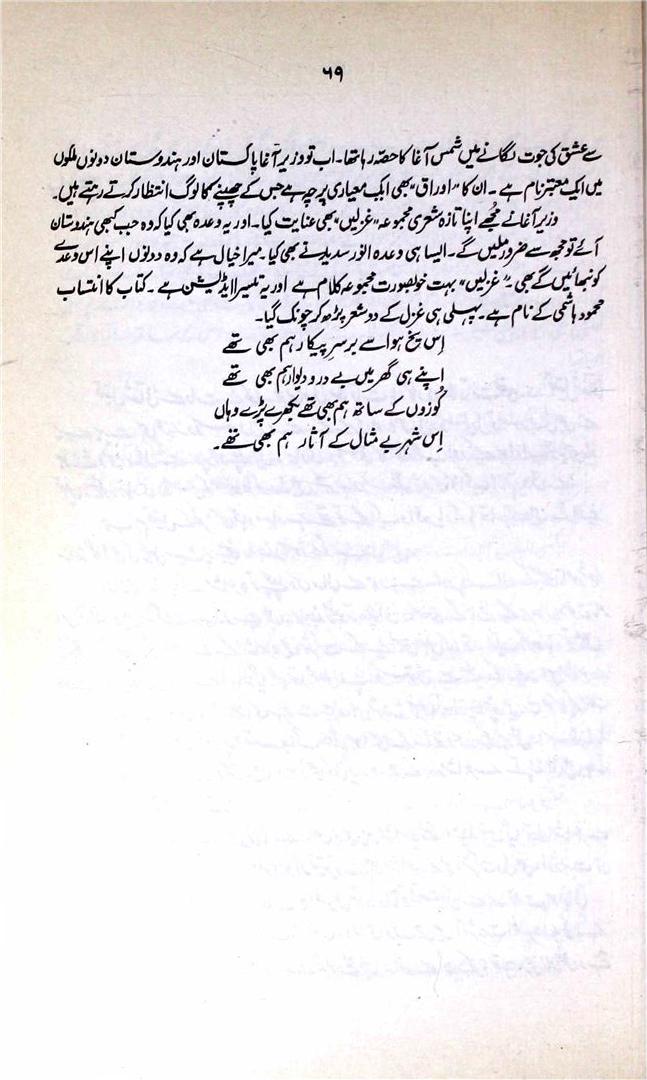 ۶۹
سے عشق کی جوت لگانے میں شمس آغا کا حصہ رہا تھا۔ اب تو وزیر آغا پاکستان اور ہندوستان دونوں ملکوں
میں ایک معتبر نام ہے۔ ان کا "اوراق" بھی ایک معیاری پرچہ ہے جس کے چھپنے کا لوگ انتظار کرتے رہتے ہیں۔
وزیر آغا نے مجھے اپنا تازہ شعری مجموعہ "غزلیں" بھی عنایت کیا۔ اور یہ وعدہ بھی کیا کہ وہ جب کبھی ہندستان
آئے تو مجھ سے ضرور ملیں گے۔ ایسا ہی وعدہ انور سدید نے بھی کیا۔ میرا خیال ہے کہ وہ دونوں اپنے اس وعدے
کو نبھائیں گے بھی۔ "غزلیں" بہت خوبصورت مجموعہ کلام ہے اور یہ تیسرا ایڈیشن ہے۔ کتاب کا انتساب
محمود ہاشمی کے نام ہے۔ پہلی ہی غزل کے دو شعر پڑھ کر چونک گیا۔
اِس یخ ہوا سے برسرِ پیکار ہم بھی تھے
اپنے ہی گھر میں بے در و دیوار ہم بھی تھے
کُوزوں کے ساتھ ہم بھی تھے بکھرے پڑے وہاں
اِس شہرِ بے مثال کے آثار ہم بھی تھے۔